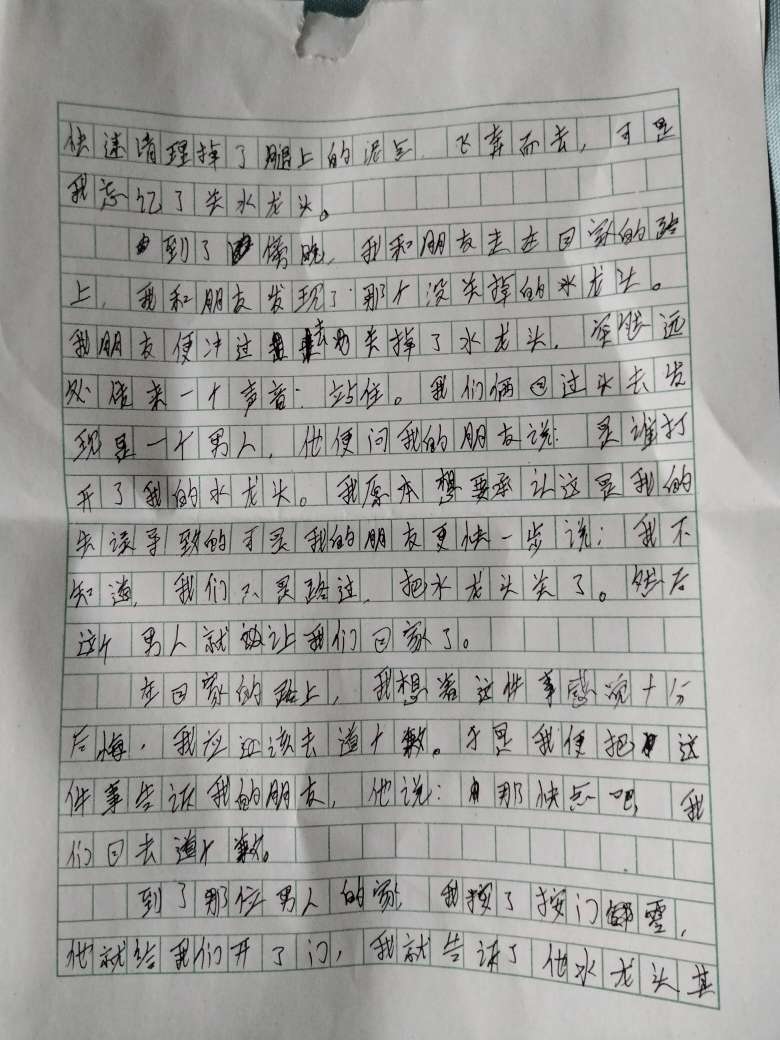 快速清理掉了腿上的泥点，飞奔而去，可是
我忘记了关水龙头。
到了傍晚，我和朋友走在回家的路
上，我和朋友发现了那个没关掉的水龙头。
我朋友便冲过去关掉了水龙头，突然远
处传来一个声音：站住。我们俩回过头去发
现是一个男人，他便问我的朋友说：是谁打
开了我的水龙头。我原本想要承认这是我的
失误导致的可是我的朋友更快一步说：我不
知道，我们只是路过，把水龙头关了。然后
这个男人就让我们回家了。
在回家的路上，我想着这件事感觉十分
后悔，我应该去道个歉。于是我便把这
件事告诉我的朋友，他说：那快点吧，我
们回去道个歉。
到了那位男人的家，我按了按门铃，
他就给我们开了门，我就告诉了他水龙头其